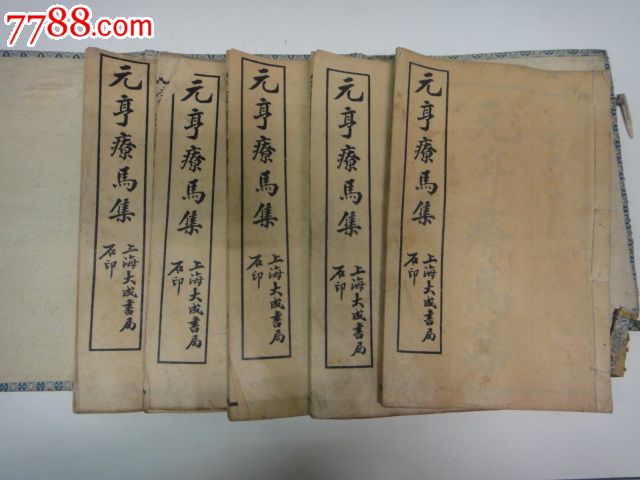 7788.com
元亨療馬集
上海大成書局
石印
元亨療馬集
上海大成書局
石印
元亨療馬集
上海大成書局
石印
元亨療馬集
上海大成書局
石印
元亨療馬集
上海大成書局
石印